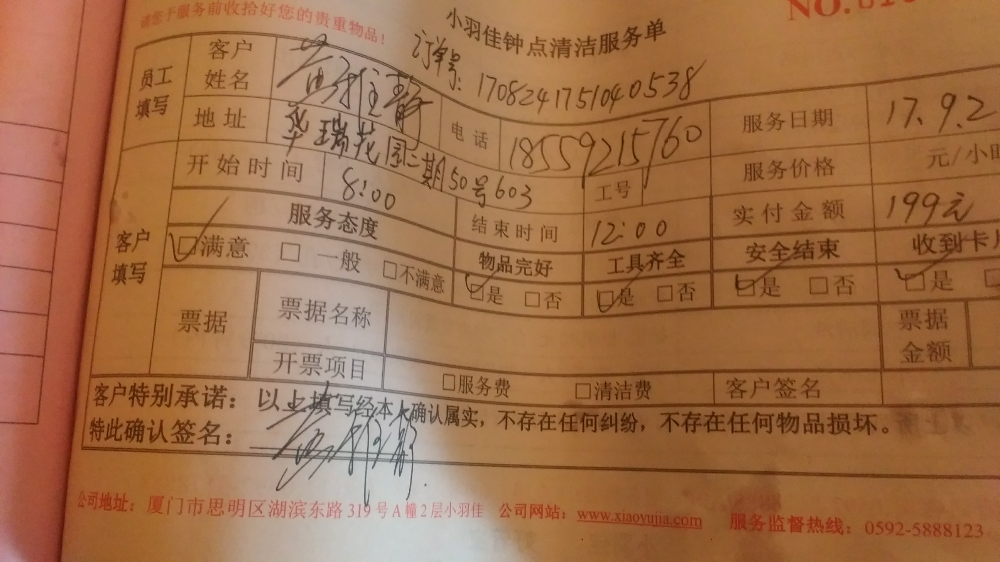 请您于服务前收拾好您的贵重物品!
小羽佳钟点清洁服务单
NO.
订单号:170824175104 0538
员工填写
客户姓名 黄雅静
地址 华瑞花园二期50号603
电话 18559215760
服务日期 17.9.2
开始时间 8:00
工号
服务价格 元/小时
结束时间 12:00
实付金额 199元
客户填写
服务态度 物品完好 工具齐全 安全结束 收到卡
☑满意 □一般 □不满意 ☑是 □否 ☑是 □否 ☑是 □否 ☑是
票据
票据名称
票据金额
开票项目 □服务费 □清洁费 客户签名
客户特别承诺:以上填写经本人确认属实,不存在任何纠纷,不存在任何物品损坏。
特此确认签名:黄雅静
公司地址:厦门市思明区湖滨东路319号A幢2层小羽佳 公司网站:www.xiaoyujia.com 服务监督热线:0592-5888123